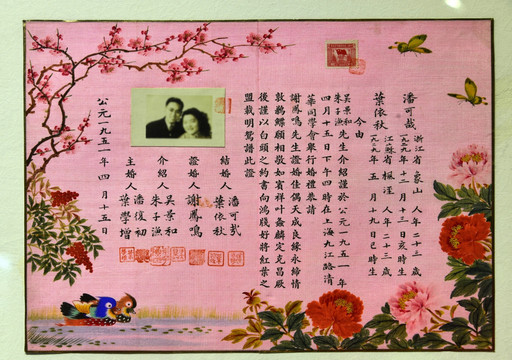 潘可哉 浙江省象山人年二十三歲
一九二九年十二月十三日亥時生
葉依秋 江蘇省楓涇人年二十三歲
一九二九年五月十九日巳時生
今由
吳景和
朱子漁先生介紹謹於公元一九五一年
四月十五日下午四時在上海九江路清
華同學會舉行婚禮恭請
謝鳳鳴先生證婚佳偶天成良緣永締情
敦鶼鰈願相敬如賓祥叶螽麟定克昌厥
後謹以白頭之約書向鴻牋好將紅葉之
盟載明鴛譜此證
結婚人 潘可哉
葉依秋
證婚人 謝鳳鳴
介紹人 吳景和
朱子漁
主婚人 潘復初
葉學增
公元一九五一年四月十五日